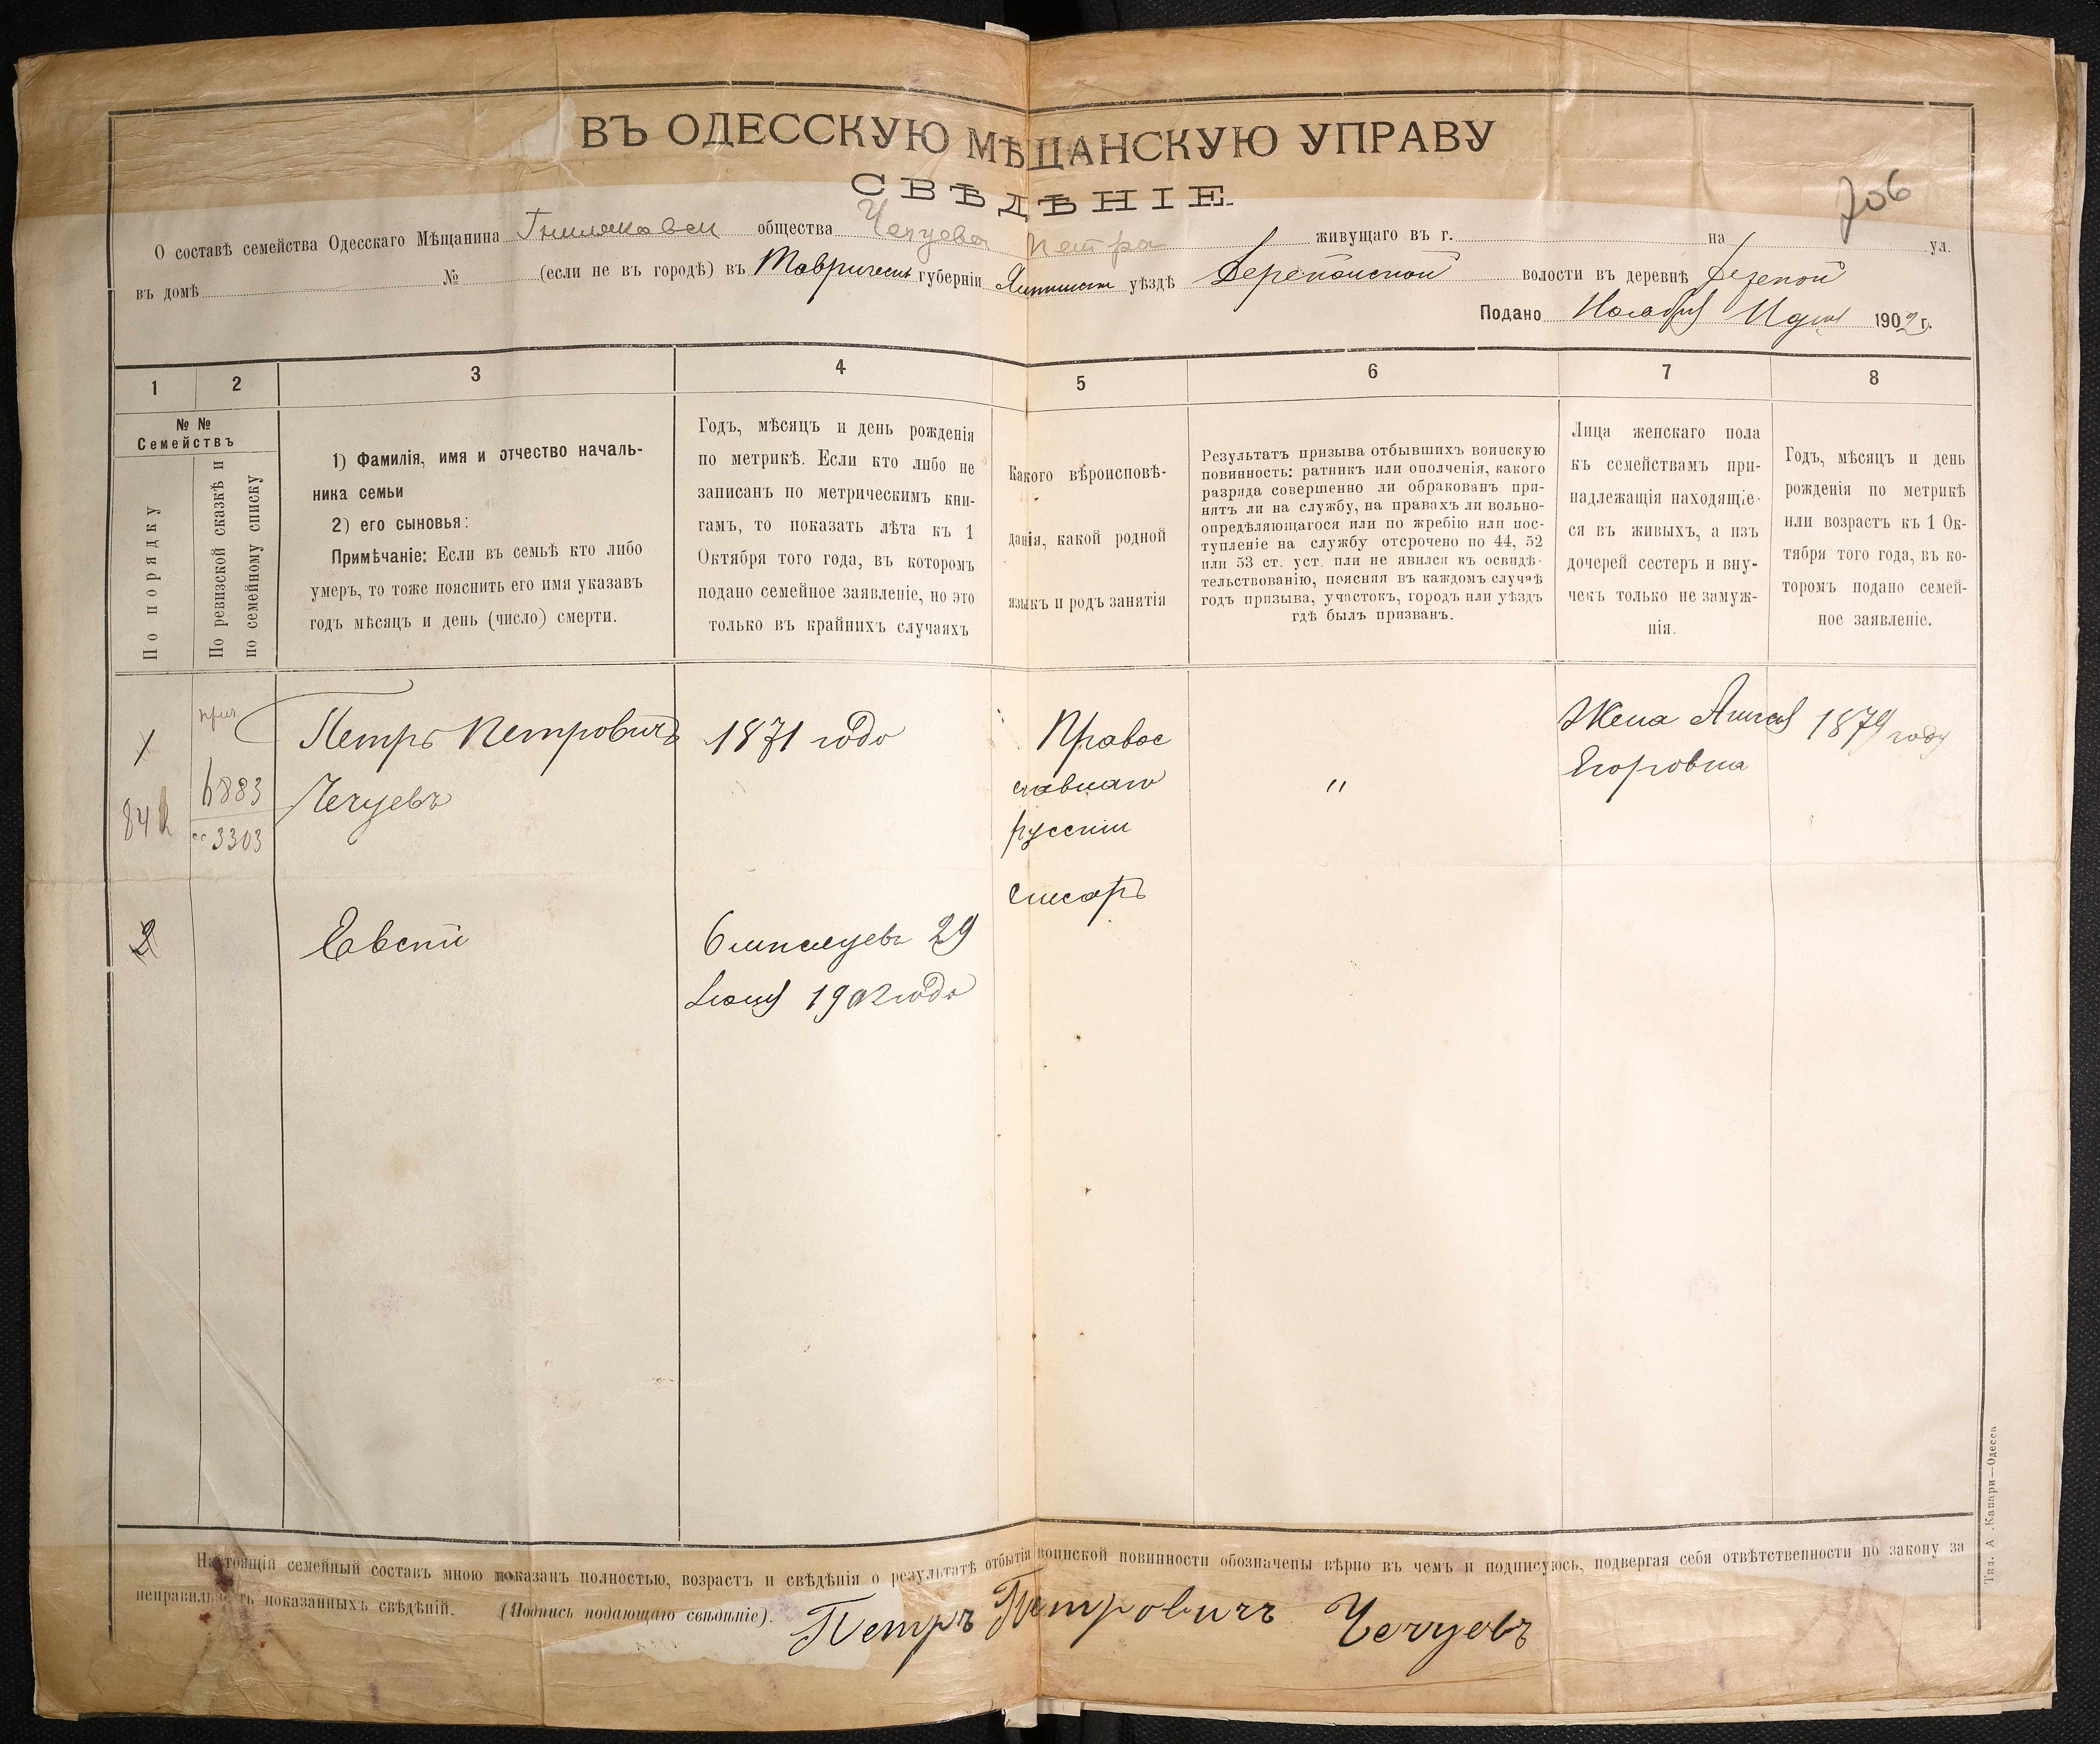 ВЪ ОДЕССКУЮ МѢЩАНСКУЮ УПРАВУ
СВѢДѢНІЕ.
706
О составѣ семейства Одесскаго Мѣщанина Гниляковск общества Чечуева Петра живущаго въ г. на ул.
въ домѣ № (если не въ городѣ) въ Тавридческ губерніи уѣздѣ волости въ деревнѣ
Подано Ноября 1902 г.
1 2 3 4 5 6 7 8
№ №
Семействъ
По порядку
По ревизской сказкѣ и
по семейному списку
1) Фамилія, имя и отчество началь-
ника семьи
2) его сыновья:
Примѣчаніе: Если въ семьѣ кто либо
умеръ, то тоже пояснить его имя указавъ
годъ мѣсяцъ и день (число) смерти.
Годъ, мѣсяцъ и день рожденія
по метрикѣ. Если кто либо не
записанъ по метрическимъ кни-
гамъ, то показать лѣта къ 1
Октября того года, въ которомъ
подано семейное заявленіе, но это
только въ крайнихъ случаяхъ
Какого вѣроисповѣ-
данія, какой родной
языкъ и родъ занятія
Результатъ призыва отбывшихъ воинскую
повинность: ратникъ или ополченія, какого
разряда совершенно ли обракованъ при-
нятъ ли на службу, на правахъ ли вольно-
опредѣляющагося или по жребію или пос-
тупленіе на службу отсрочено по 44, 52
или 53 ст. уст. или не явился къ освидѣ-
тельствованію, поясняя въ каждомъ случаѣ
годъ призыва, участокъ, городъ или уѣздъ
гдѣ былъ призванъ.
Лица женскаго пола
къ семействамъ при-
надлежащія находящіе-
ся въ живыхъ, а изъ
дочерей сестеръ и вну-
чекъ только не замуж-
нія.
Годъ, мѣсяцъ и день
рожденія по метрикѣ
или возрастъ къ 1 Ок-
тября того года, въ ко-
торомъ подано семей-
ное заявленіе.
1
842
прич.
6883
сс 3303
Петръ Петровичъ
Чечуевъ
1871 года
Правос
лавнаго
русскій
Слесарь
"
Жена Анна
Егоровна
1879 году
2
Евсти
29
1902 года
Настоящій семейный составъ мною показанъ полностью, возрастъ и свѣдѣнія о результатѣ отбытія воинской повинности обозначены вѣрно въ чемъ и подписуюсь, подвергая себя отвѣтственности по закону за
неправильность показанныхъ свѣдѣній. (Подпись подающаго свѣдѣніе). Петръ Петровичъ Чечуевъ
Тип. А. Капари—Одесса